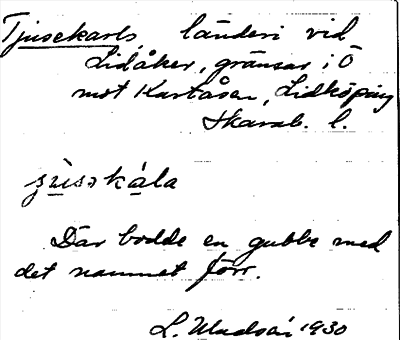 Tjusekarls länderi vid
Lidåker, gränsar i Ö
mot Kartåsen, Lidköping
Skarab. l.
Där bodde en gubbe med
det namnet förr.
L. 1930